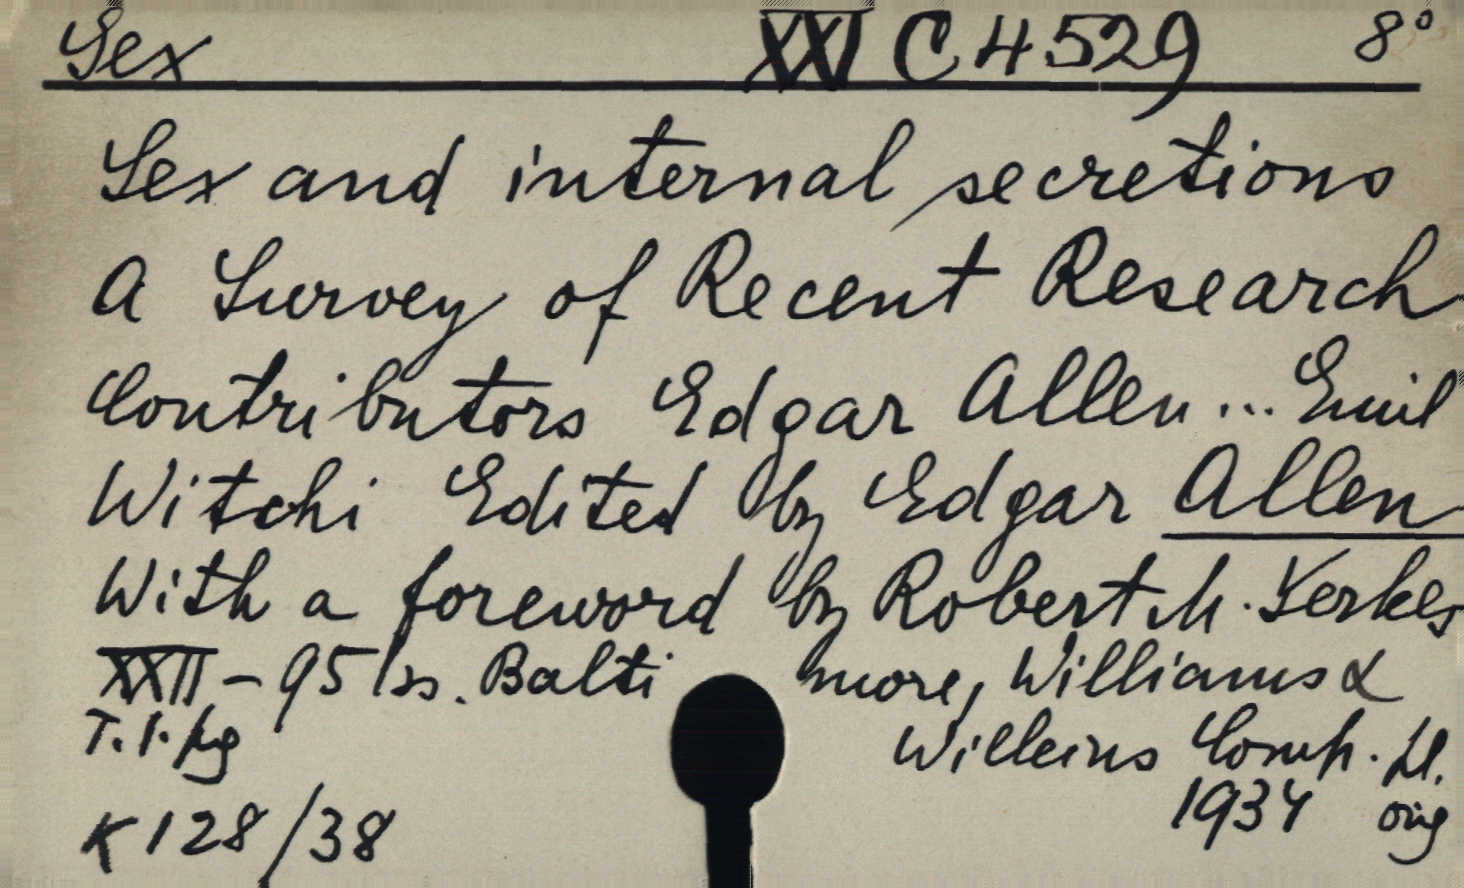 Sex XXI C 4529 8°
Sex and internal secretions
A Survey of Recent Research
Contributors Edgar Allen... Emil
Witschi Edited by Edgar Allen
With a foreword by Robert M. Yerkes
XXII-951 ss. Baltimore, Williams &
T.1. Wilkins Comp.
1934
K 128/38